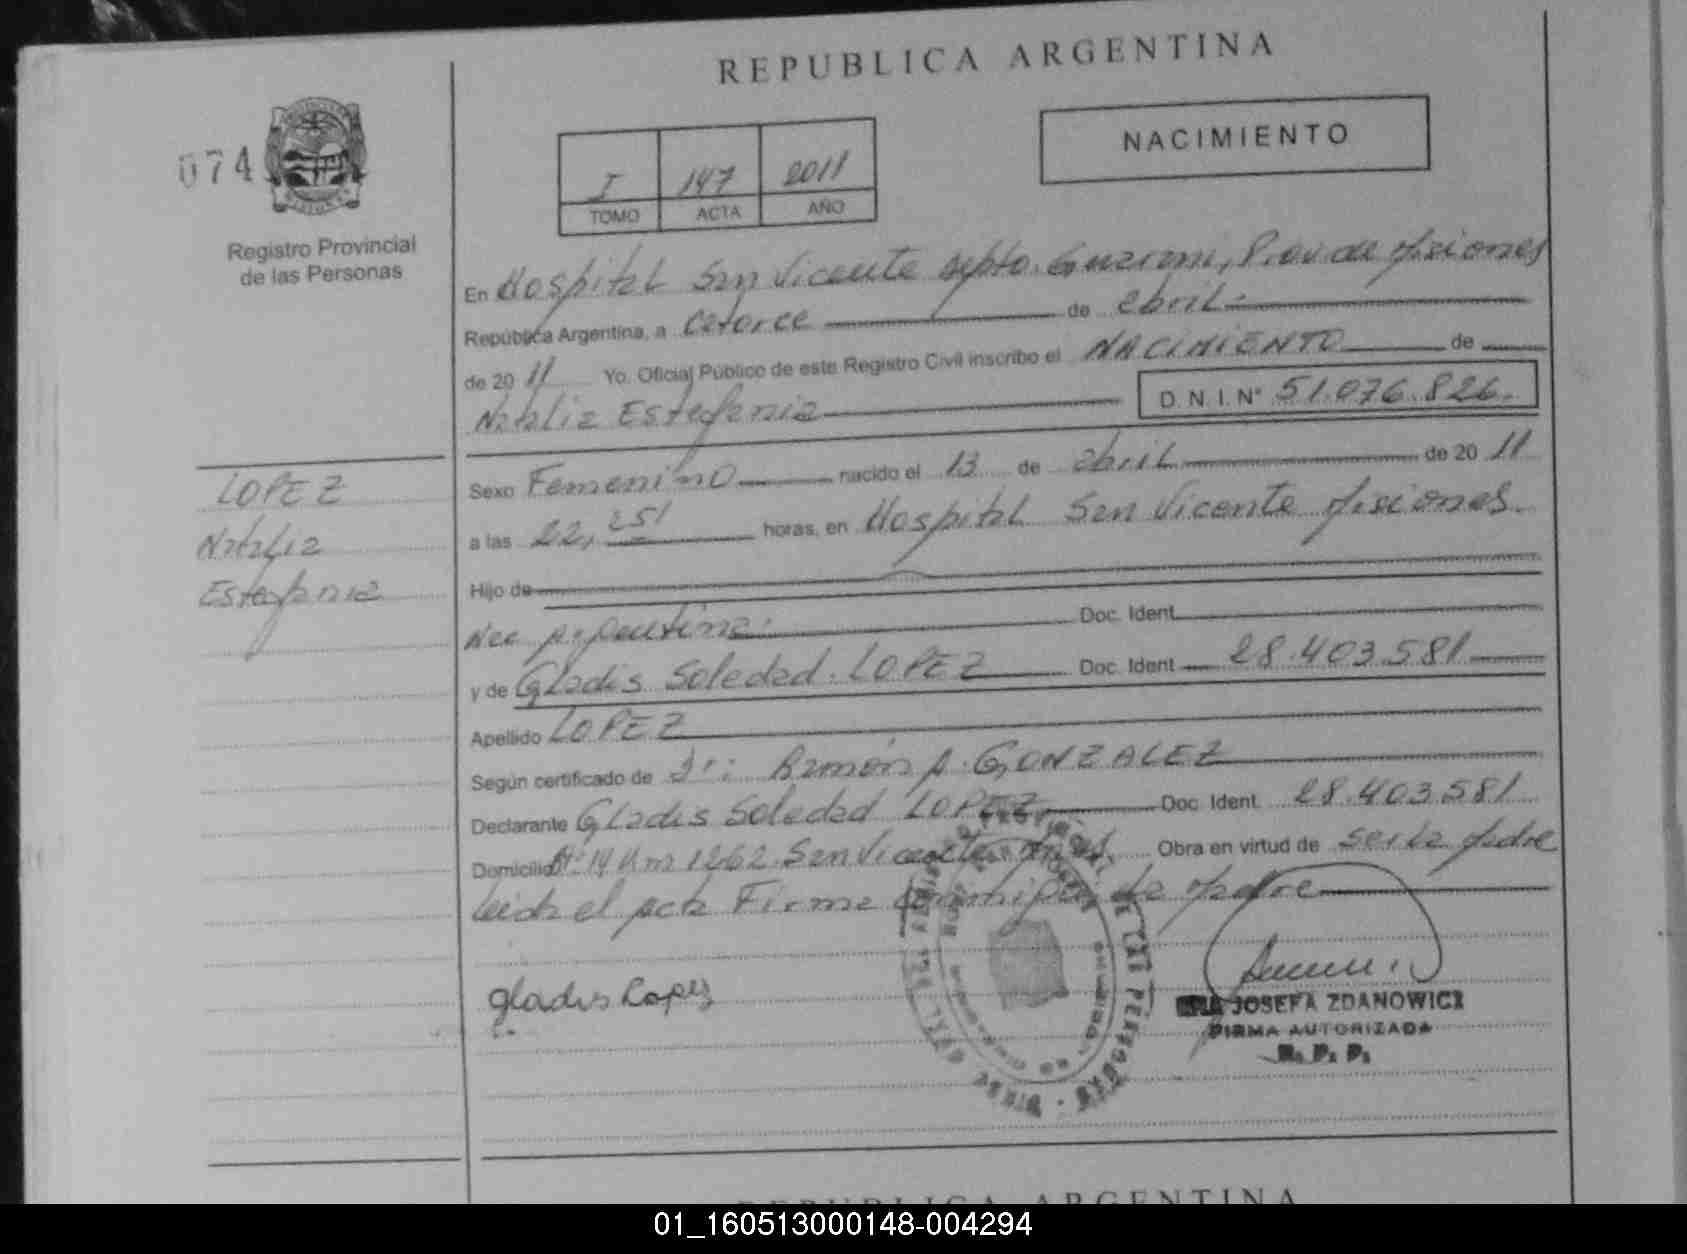 REPUBLICA ARGENTINA
074
NACIMIENTO
I 147 2011
TOMO ACTA AÑO
Registro Provincial
de las Personas
En Hospital San Vicente Depto. Guarani, Prov. de Misiones
República Argentina, a Catorce de abril
de 20 11 Yo, Oficial Público de este Registro Civil inscribo el NACIMIENTO de
Natalia Estefania D. N. I. N° 51.076.826.
LOPEZ
Natalia
Estefania
Sexo Femenino nacido el 13 de abril de 20 11
a las 22, 25' horas, en Hospital San Vicente Misiones.
Hijo de
Nac Argentina. Doc. Ident.
y de Gladis Soledad LOPEZ Doc. Ident 28.403.581
Apellido LOPEZ
Según certificado de Dr: Ramón A. GONZALEZ
Declarante Gladis Soledad LOPEZ Doc. Ident. 28.403.581
Domicilio 14 Km 1262 San Vicente Obra en virtud de ser la Madre
Leida el acta Firma conmigo la Madre
Gladis Lopez
JOSEFA ZDANOWICZ
FIRMA AUTORIZADA
R. P. P.
REPUBLICA ARGENTINA
01_160513000148-004294